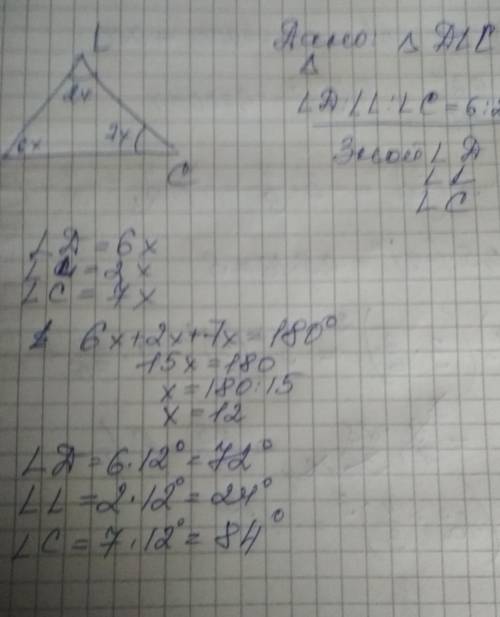 L
2x
6x
7x
C
Дано: △ ДLC
∠Д:∠L:∠C = 6:2
∠Д
∠L
∠C
∠Д = 6x
∠L = 2x
∠C = 7x
6x+2x+7x=180°
15x=180
x=180:15
x=12
∠Д=6·12°=72°
∠L=2·12°=24°
∠C=7·12°=84°